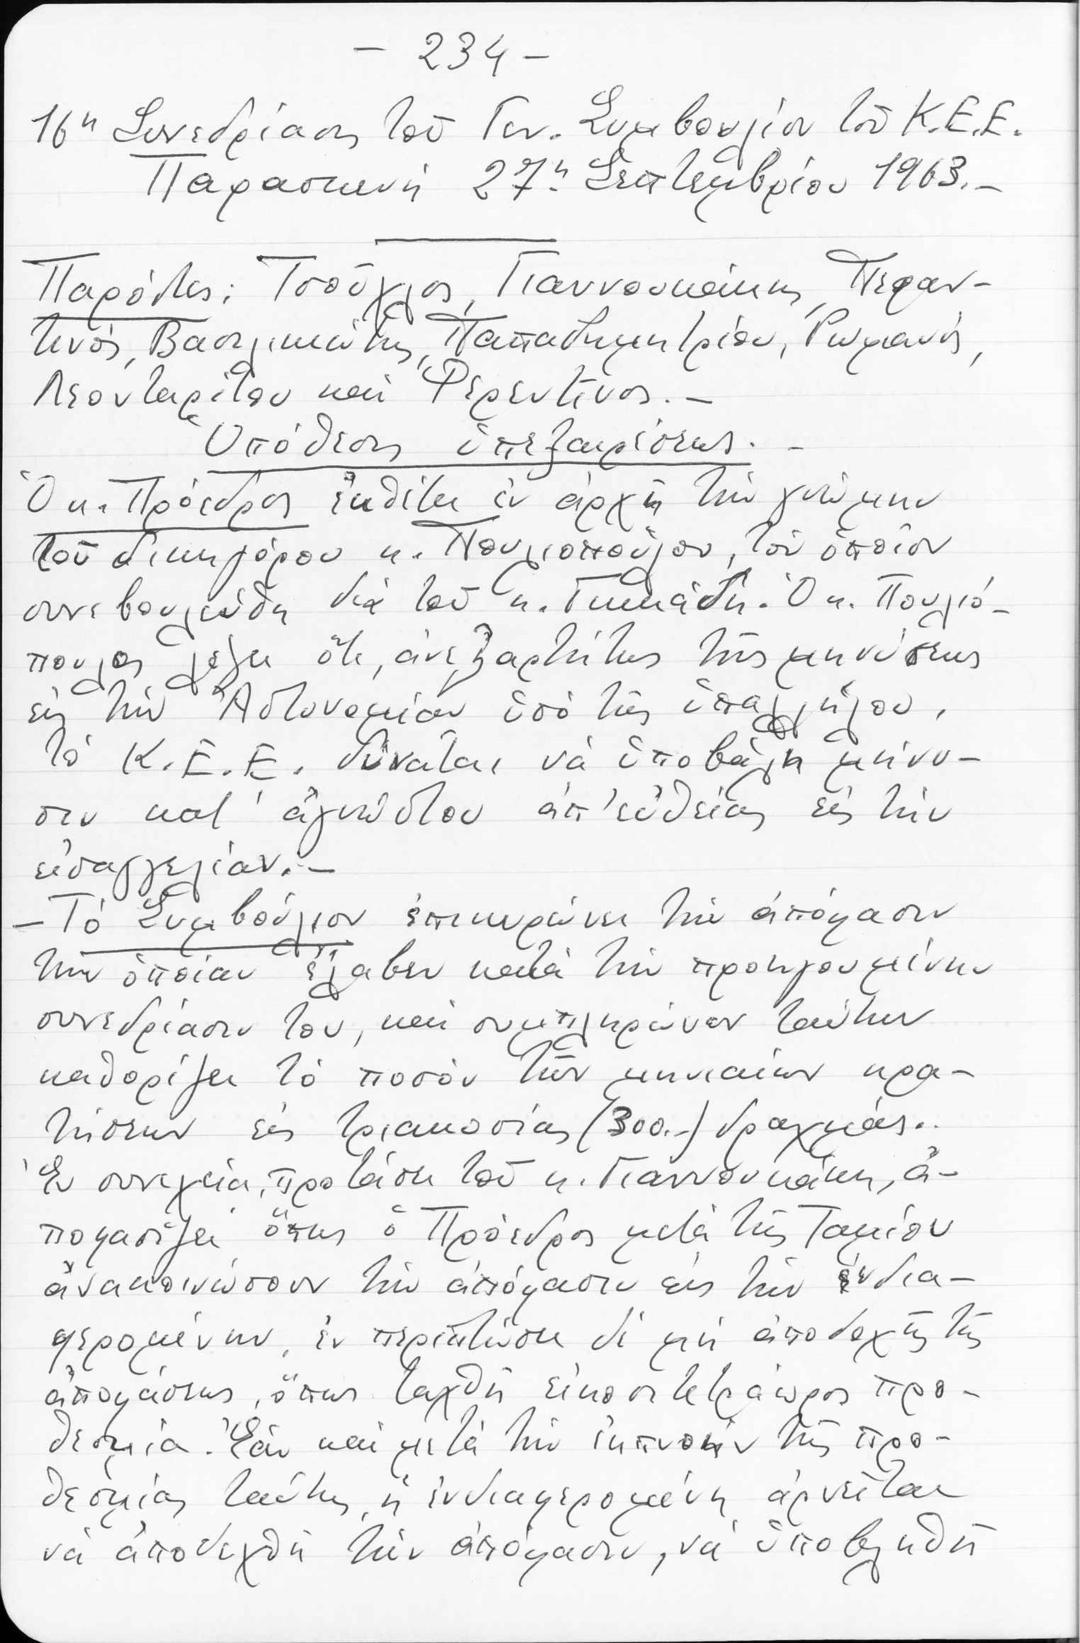 - 234 -
16η Συνεδρίασις τοῦ Γεν. Συμβουλίου τοῦ Κ.Ε.Ε.
Παρασκευή 27η Σεπτεμβρίου 1963.-
Παρόντες: Τσοῦχλος, Γιαννουκάκης, Πεφαν-
τινός, Βασιλικιώτης, Παπαδημητρίου, Ρωμανός,
Λεονταρίτου καί Φερεντῖνος.-
Ὑπόθεσις ὑπεξαιρέσεως. -
Ὁ κ. Πρόεδρος ἐκθέτει ἐν ἀρχῇ τήν γνώμην
τοῦ δικηγόρου κ. Πουλιοπούλου, τόν ὁποῖον
συνεβουλεύθη διά τοῦ κ. Ὁ κ. Πουλιό-
πουλος λέγει ὅτι, ἀνεξαρτήτως τῆς μηνύσεως
εἰς τήν Ἀστυνομίαν ὑπό τῆς ὑπαλλήλου,
τό Κ.Ε.Ε. δύναται νά ὑποβάλῃ μήνυ-
σιν κατ' ἀγνώστου ἀπ' εὐθείας εἰς τήν
εἰσαγγελίαν.-
- Τό Συμβούλιον ἐπικυρώνει τήν ἀπόφασιν
τήν ὁποίαν ἔλαβεν κατά τήν προηγουμένην
συνεδρίασιν του, καί συμπληρώνον ταύτην
καθορίζει τό ποσόν τῶν μηνιαίων κρα-
τήσεων εἰς τριακοσίας (300.-) δραχμάς..
Ἐν συνεχείᾳ, προτάσει τοῦ κ. Γιαννουκάκη, ἀ-
ποφασίζει ὅπως ὁ Πρόεδρος μετά τῆς Ταμίου
ἀνακοινώσουν τήν ἀπόφασιν εἰς τήν ἐνδια-
φερομένην, ἐν περιπτώσει δέ μή ἀποδοχῆς τῆς
ἀποφάσεως, ὅπως ταχθῇ εἰκοσιτετράωρος προ-
θεσμία. Ἐάν καί μετά τήν ἐκπνοήν τῆς προ-
θεσμίας ταύτης ἡ ἐνδιαφερομένη ἀρνεῖται
νά ἀποδεχθῇ τήν ἀπόφασιν, νά ὑποβληθῇ